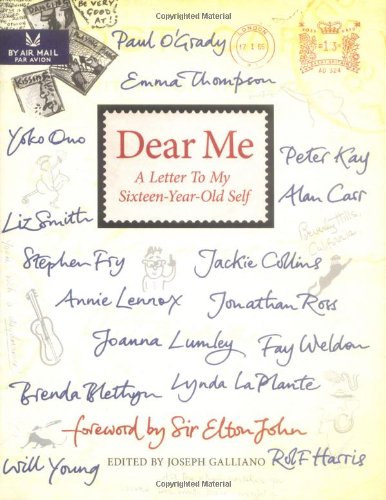 Copyrighted Material
Paul O'Grady
BY AIR MAIL
PAR AVION
LONDON
Emma Thompson
Yoko Ono
Dear Me
A Letter To My
Sixteen-Year-Old Self
Peter Kay
Alan Carr
Liz Smith
Beverly Hills,
California
Stephen Fry
Jackie Collins
Annie Lennox
Jonathan Ross
Joanna Lumley
Fay Weldon
Brenda Blethyn
Lynda LaPlante
foreword by Sir Elton John
EDITED BY JOSEPH GALLIANO
Will Young
Rolf Harris
Copyrighted Material